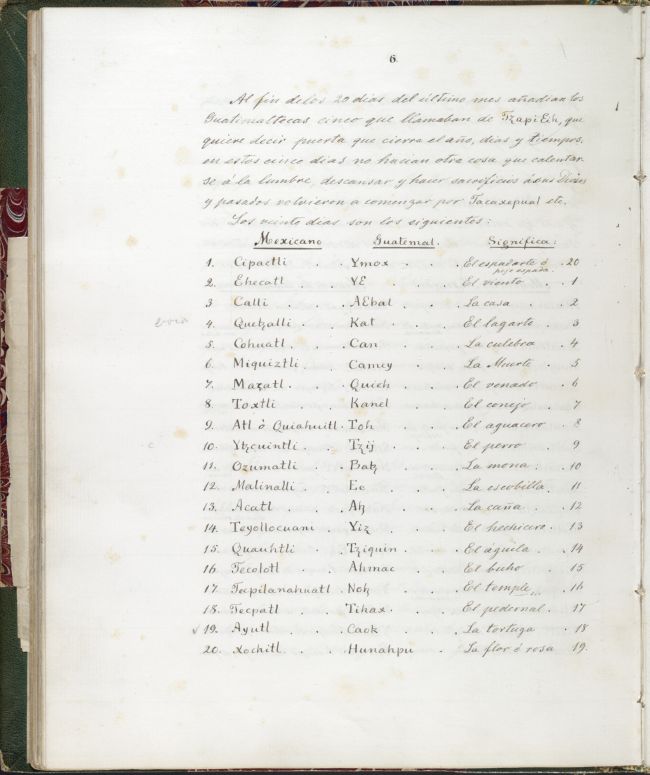 6
Al fin de los 20 dias del último mes añadian los
Guatemaltecas cinco que llamaban de TzapiEih, que
quiere decir puerta que cierra el año, dias y tiempos.
en estos cinco dias no hacian otra cosa que calentar-
se á la lumbre, descansar y hacer sacrificios á sus Dioses
y pasados volvieron a comenzar por Tacaxepual etc.
Los veinte dias son los siguientes:
Mexicano Guatemal. Significa:
1. Cipactli . . Ymox . . El espadarte ó peje espada . 20
2. Ehecatl . . YE . . El viento . 1
3 Calli . . AEbal . . La casa . 2
4. Quetzalli . . Kat . . El lagarto . 3
5. Cohuatl . . Can . . La culebra . 4
6. Miquiztli . . Camey . . La Muerte . 5
7. Maçatl . . Quieh . . El venado . 6
8. Toxtli . . Kanel . . El conejo . 7
9. Atl ò Quiahuitl . Toh . . El aguacero . 8
10. Ytzcuintli . . Tzij . . El perro . 9
11. Ozumatli . . Batz . . La mona . 10
12. Malinalli . . Ee . . La escobilla . 11
13. Acatl . . Ah . . La caña . 12
14. Teyollocuani . Yiz . . El hechicero . 13
15. Quauhtli . . Tziquin . . El águila . 14
16. Tecolotl . . Ahmac . . El buho . 15
17. Tecpilanahuatl . Noh . . El temple . 16
18. Tecpatl . . Tihax . . El pedernal . 17
19. Ayutl . . Caok . . La tortuga . 18
20. Xochitl . . Hunahpu . La flor ó rosa 19.